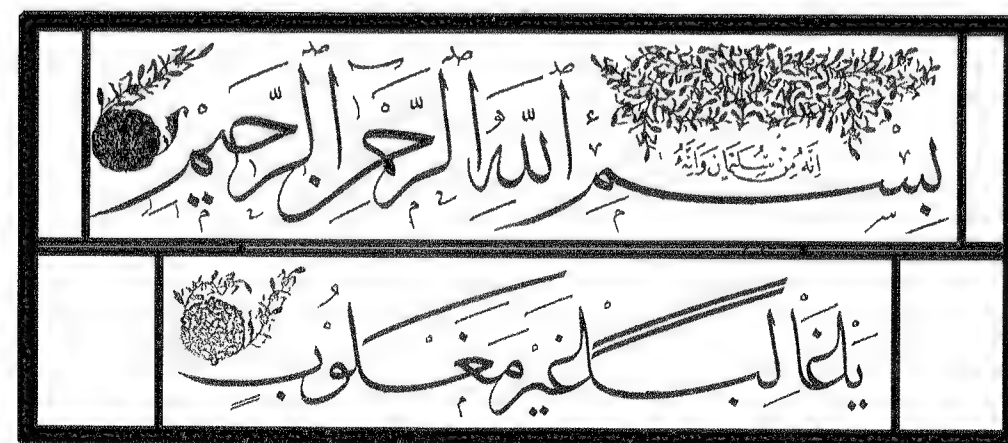 إِنَّهُ مِنْ سُلَيْمَانَ وَإِنَّهُ
بِسْمِ اللَّهِ الرَّحْمٰنِ الرَّحِيمِ
يَا غَالِبًا غَيْرَ مَغْلُوبٍ